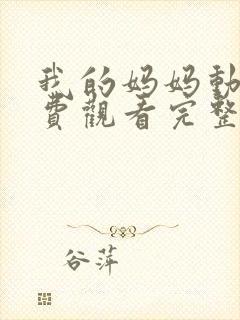 我的妈妈動
費觀看完整
谷萍